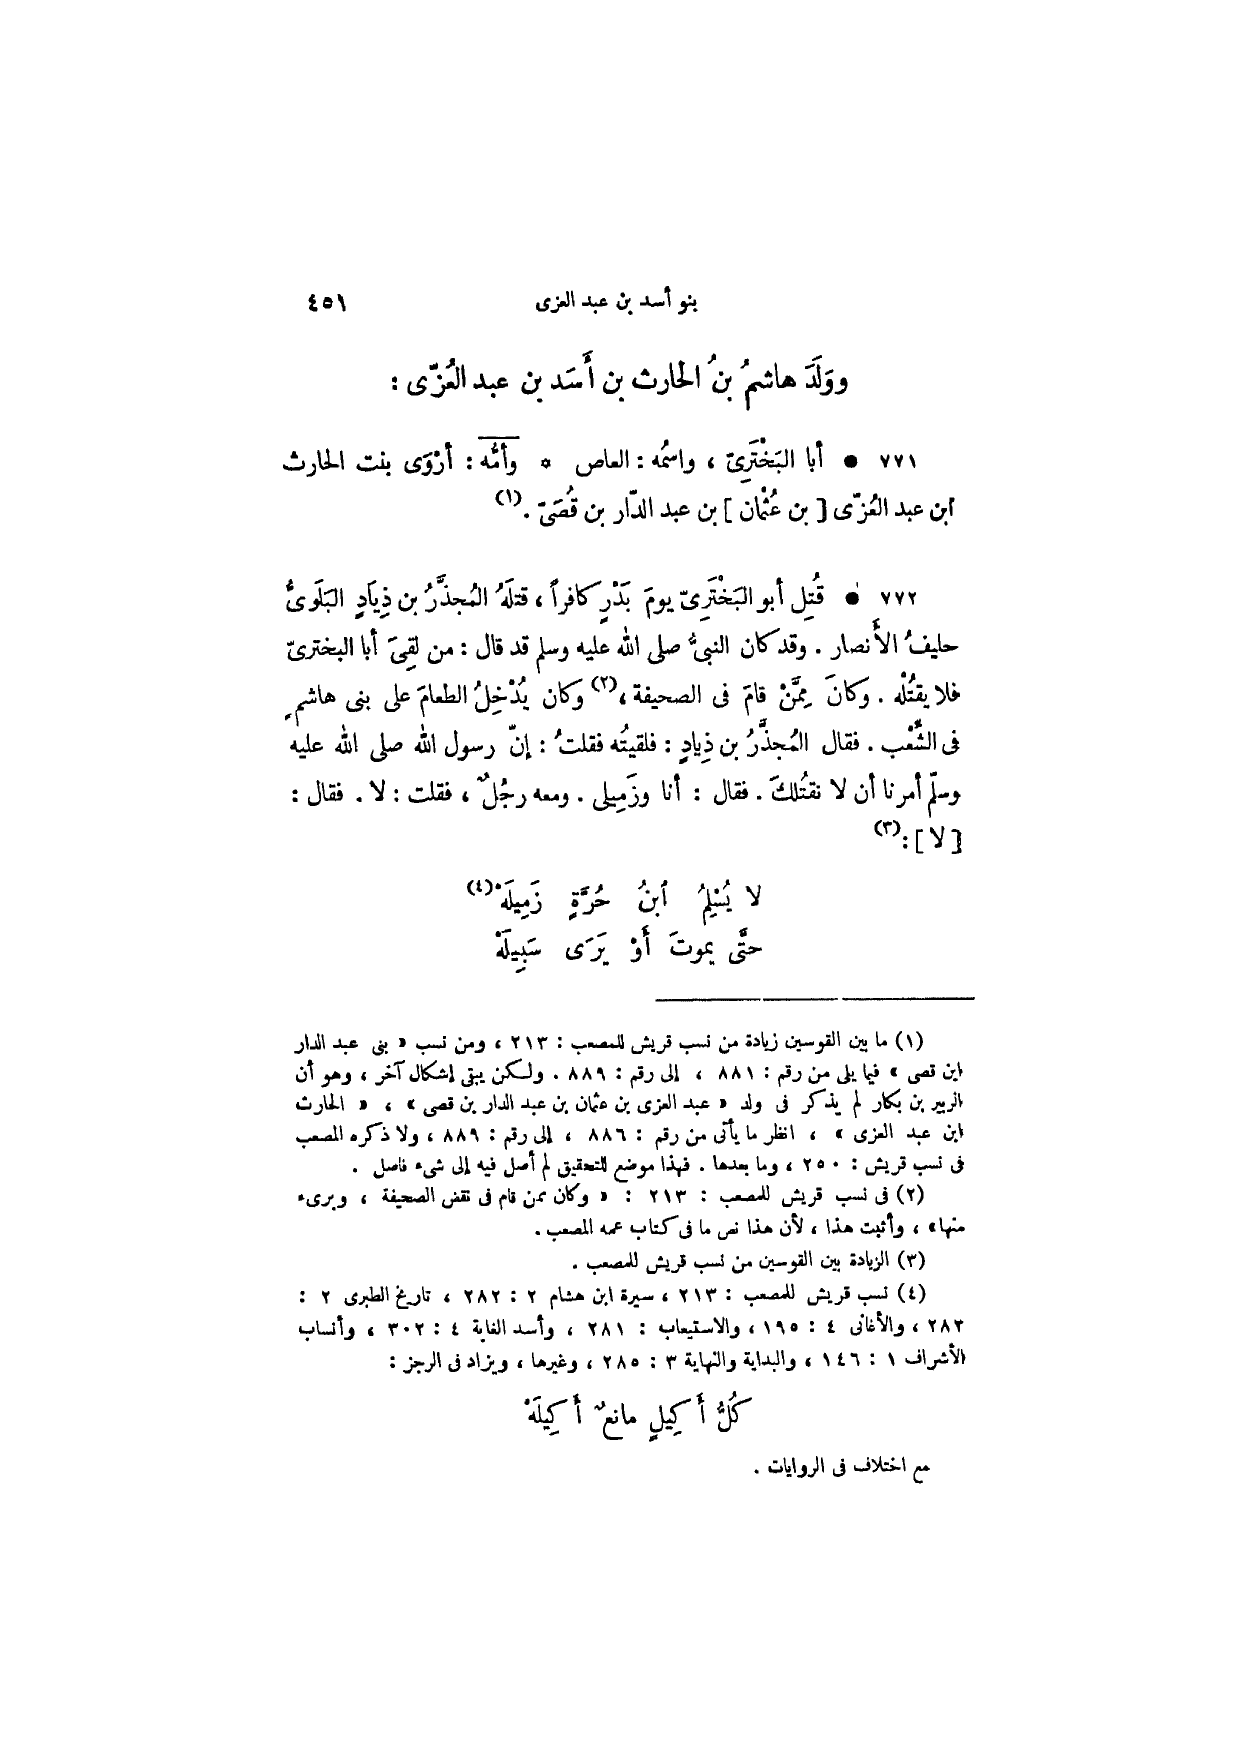 بنو أسد بن عبد العزى ٤٥١
ووَلَدَ هاشمُ بنُ الحارث بن أَسَد بن عبد العُزّى :
٧٧١ ● أبا البَخْتَرِيّ ، واسمُه : العاص * وأمُّه : أرْوَى بنت الحارث
ابن عبد العُزّى [ بن عُثْمان ] بن عبد الدّار بن قُصَىّ .(١)
٧٧٢ ● قُتِل أبو البَخْتَرِىّ يومَ بَدْرٍ كافراً ، قتلَهُ المُجذَّرُ بن ذِيَادٍ البَلَوِىُّ
حليفُ الأَنصار . وقد كان النبىُّ صلى الله عليه وسلم قد قال : من لقِىَ أبا البخترىّ
فلا يقتُلْه . وكانَ مِمَّنْ قامَ فى الصحيفة ،(٢) وكان يُدْخِلُ الطعامَ على بنى هاشمٍ
فى الشِّعْب . فقال المُجذَّرُ بن ذِيادٍ : فلقيتُه فقلتُ : إنّ رسول الله صلى الله عليه
وسلّم أمرنا أن لا نقتُلكَ . فقال : أنا وزَمِيلى . ومعه رجُلٌ ، فقلت : لا . فقال :
[ لا ] :(٣)
لا يُسْلِمُ ٱبنُ حُرَّةٍ زَمِيلَهْ(٤)
حتَّى يموتَ أَوْ يَرَى سَبِيلَهْ
(١) ما بين القوسين زيادة من نسب قريش للمصعب : ٢١٣ ، ومن نسب « بنى عبد الدار
ابن قصى » فيما يلى من رقم : ٨٨١ ، إلى رقم : ٨٨٩ . ولكن يبقى إشكال آخر ، وهو أن
الزبير بن بكار لم يذكر فى ولد « عبد العزى بن عثمان بن عبد الدار بن قصى » ، « الحارث
ابن عبد العزى » ، انظر ما يأتى من رقم : ٨٨٦ ، إلى رقم : ٨٨٩ ، ولا ذكره المصعب
فى نسب قريش : ٢٥٠ ، وما بعدها . فهذا موضع للتحقيق لم أصل فيه إلى شىء فاصل .
(٢) فى نسب قريش للمصعب : ٢١٣ : « وكان ممن قام فى نقض الصحيفة ، وبرىء
منها» ، وأثبت هذا ، لأن هذا نص ما فى كتاب عمه المصعب .
(٣) الزيادة بين القوسين من نسب قريش للمصعب .
(٤) نسب قريش للمصعب : ٢١٣ ، سيرة ابن هشام ٢ : ٢٨٢ ، تاريخ الطبرى ٢ :
٢٨٣ ، والأغانى ٤ : ١٩٥ ، والاستيعاب : ٢٨١ ، وأسد الغابة ٤ : ٣٠٢ ، وأنساب
الأشراف ١ : ١٤٦ ، والبداية والنهاية ٣ : ٢٨٥ ، وغيرها ، ويزاد فى الرجز :
كُلُّ أَكِيلٍ مانعٌ أَكِيلَهْ
مع اختلاف فى الروايات .